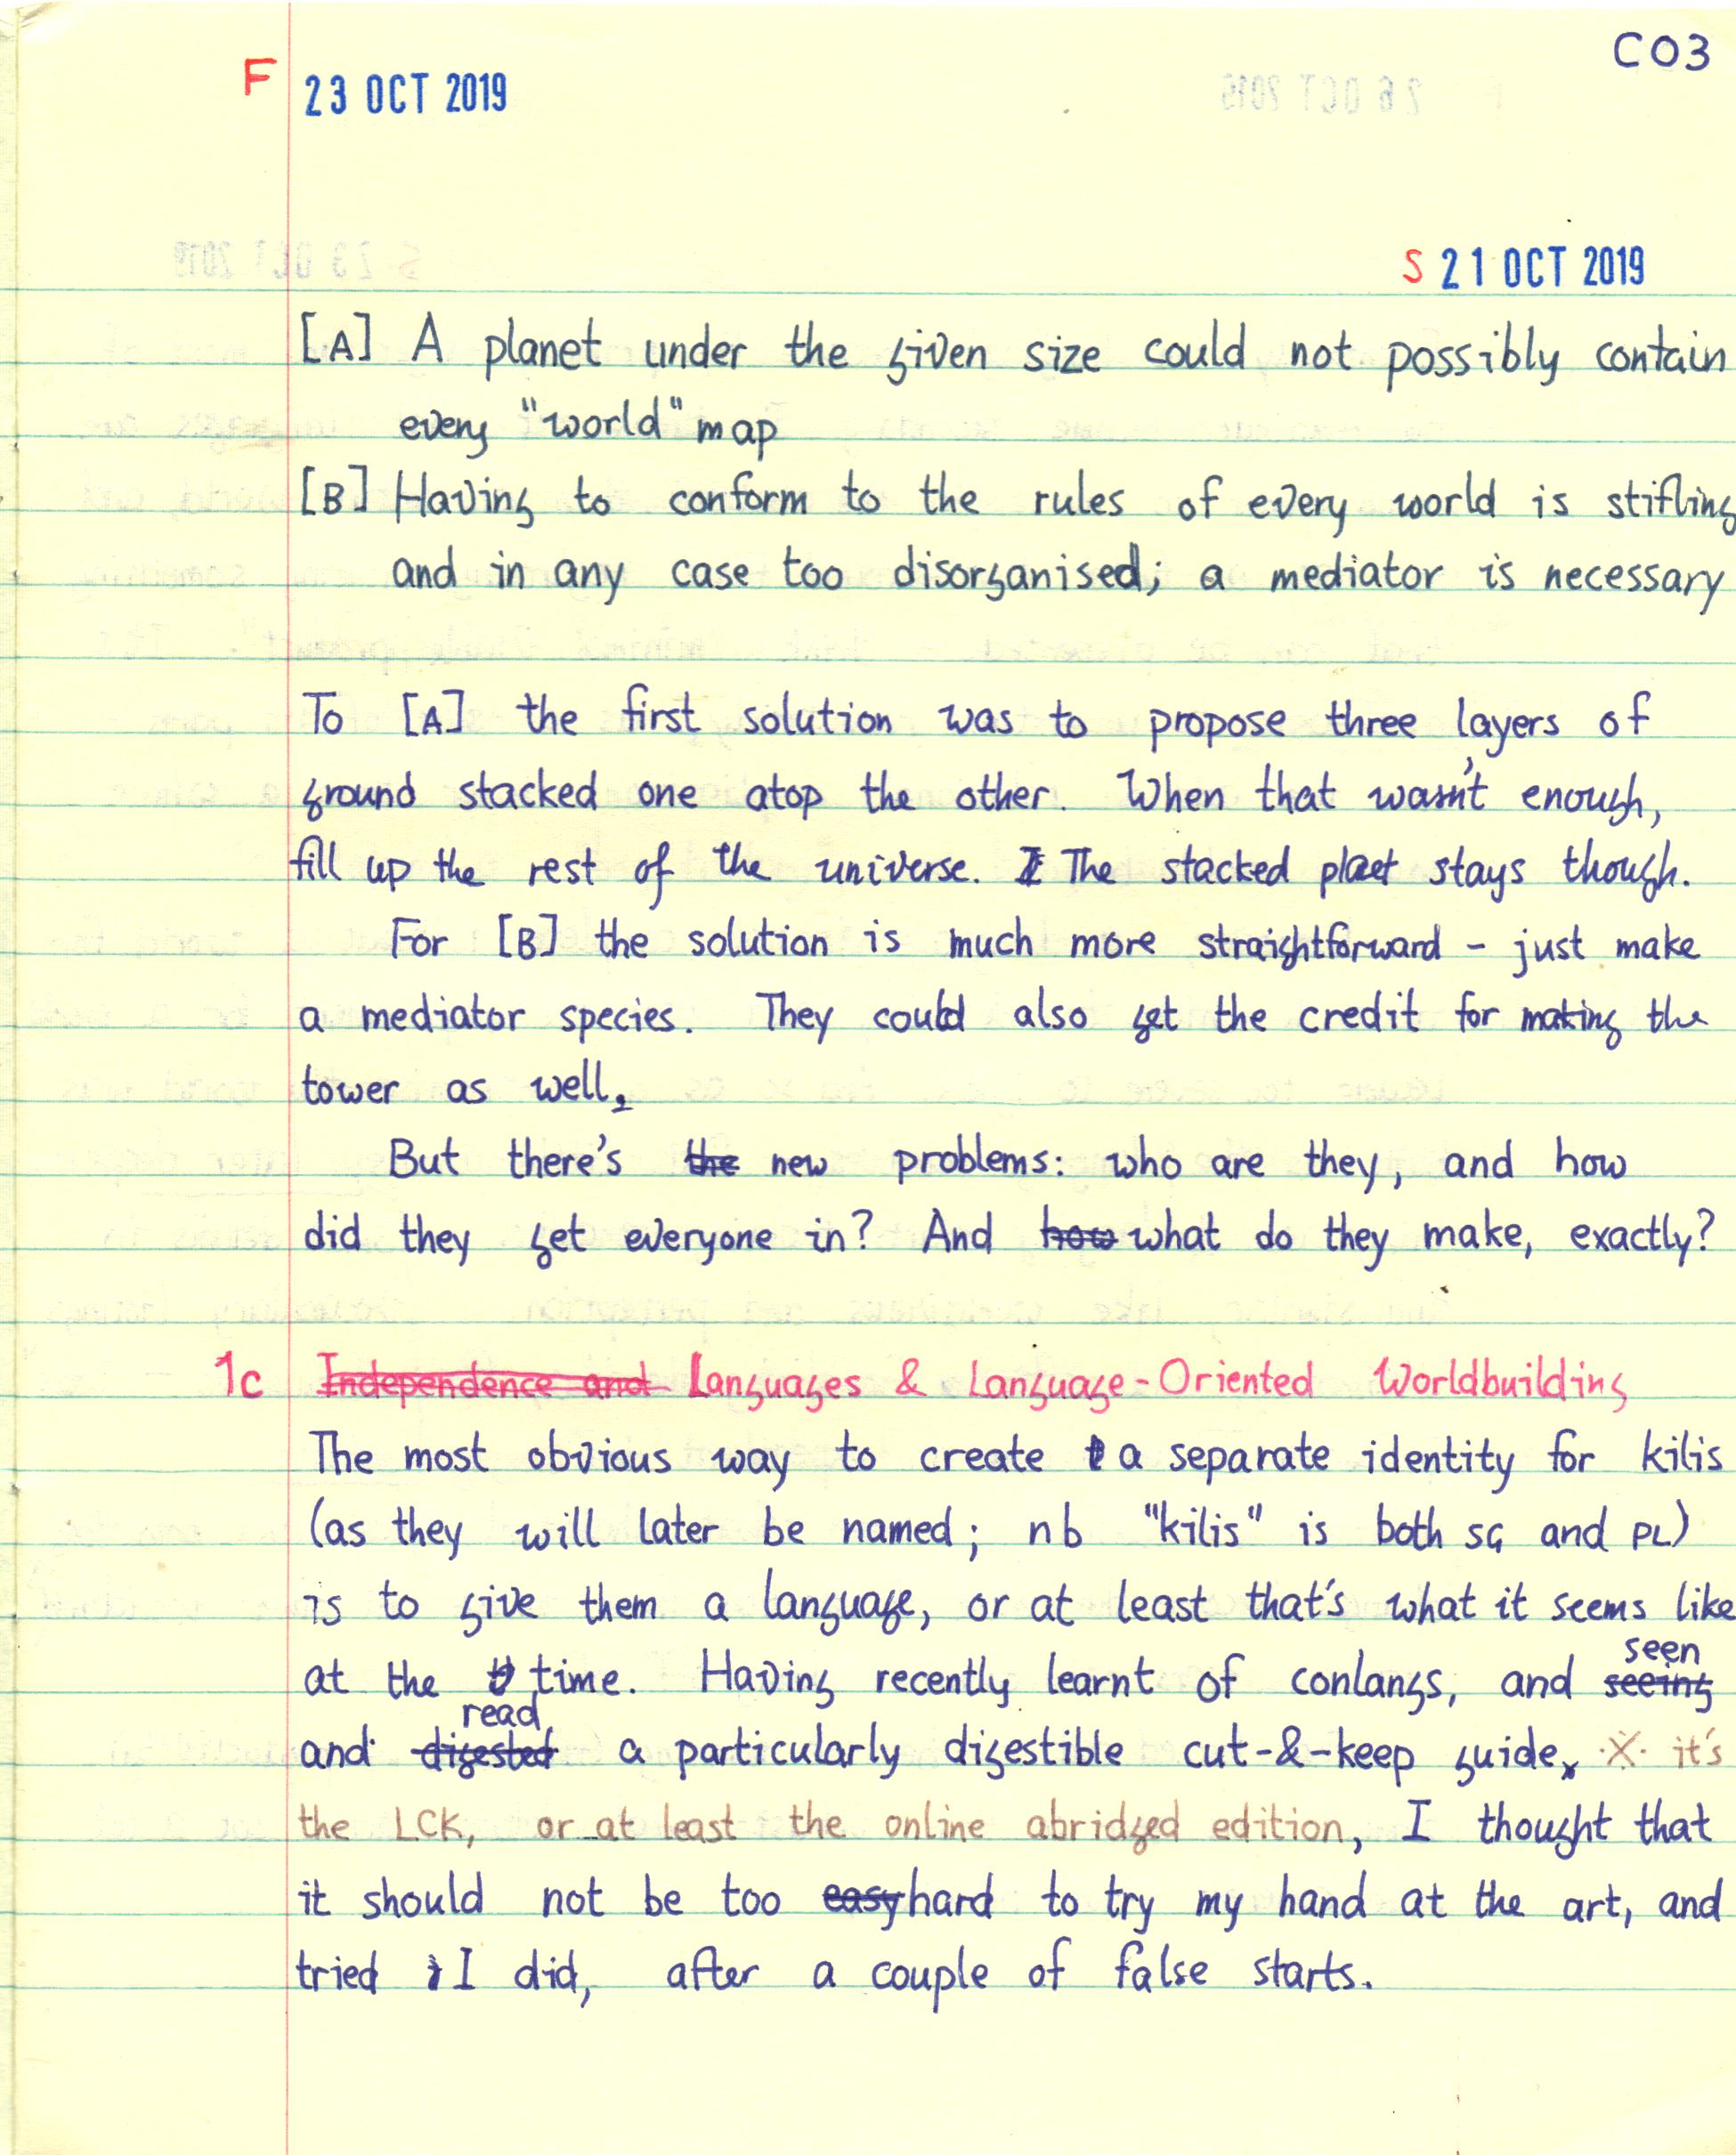 CO3
F 23 OCT 2019
S 21 OCT 2019
[A] A planet under the given size could not possibly contain
every "world" map
[B] Having to conform to the rules of every world is stifling
and in any case too disorganised; a mediator is necessary
To [A] the first solution was to propose three layers of
ground stacked one atop the other. When that wasn't enough,
fill up the rest of the universe. The stacked plaet stays though.
For [B] the solution is much more straightforward - just make
a mediator species. They could also get the credit for making the
tower as well.
But there's the new problems: who are they, and how
did they get everyone in? And how what do they make, exactly?
1c Independence and Languages & Language-Oriented Worldbuilding
The most obvious way to create a separate identity for kilis
(as they will later be named; nb "kilis" is both SG and PL)
is to give them a language, or at least that's what it seems like
seen
at the time. Having recently learnt of conlangs, and seeing
read
and digested a particularly digestible cut-&-keep guide, ·X· it's
the LCK, or at least the online abridged edition, I thought that
it should not be too easy hard to try my hand at the art, and
tried I did, after a couple of false starts.